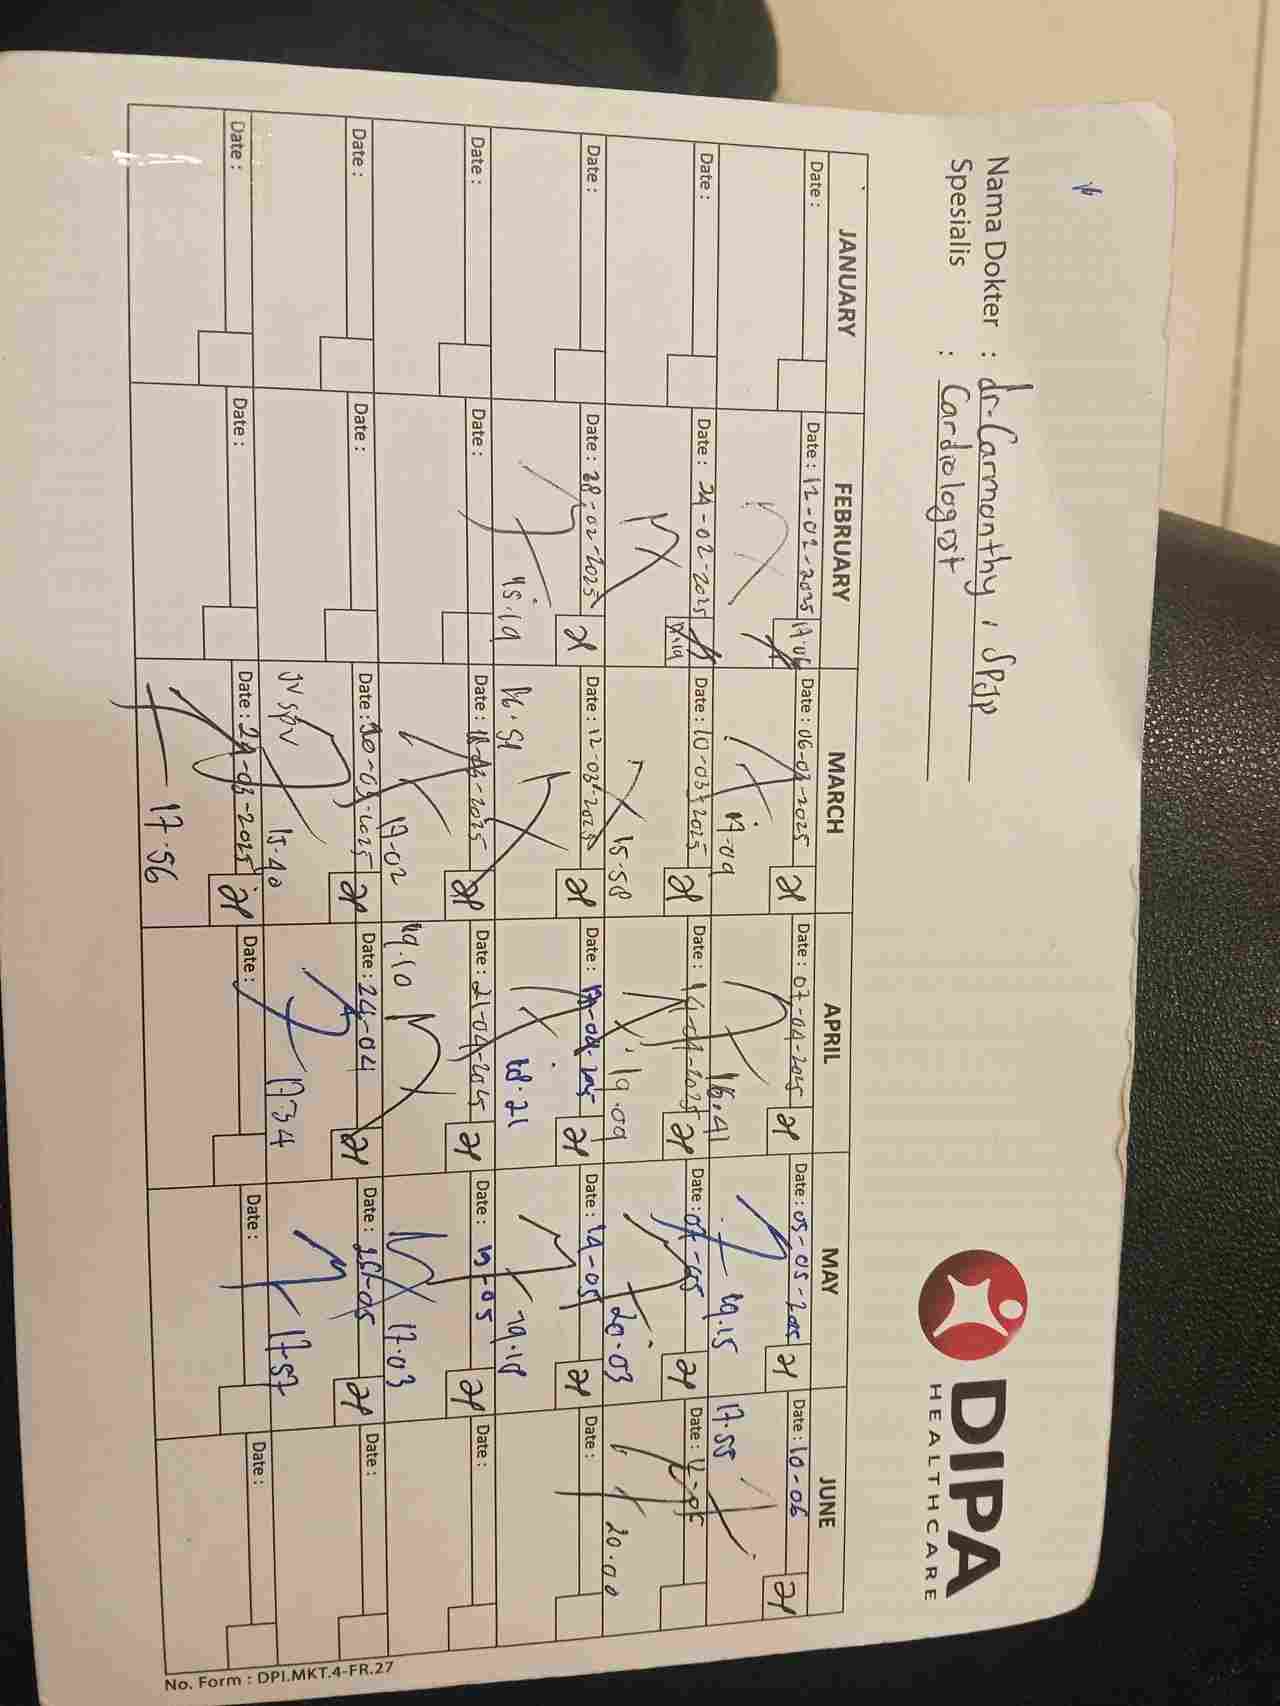 DIPA
HEALTHCARE
Nama Dokter : dr. Carmanthy, SPJP
Spesialis : Cardiologist
JANUARY FEBRUARY MARCH APRIL MAY JUNE
Date : Date : 12-02-2025 17.06 Date : 06-03-2025 Date : 07-04-2025 Date : 05-05-2025 Date : 10-06
17.09 16.41 19.15 17.55
Date : Date : 24-02-2025 17.19 Date : 10-03-2025 Date : 14-04-2025 Date : 07-05 Date :
15.58 19.09 20.03 20.00
Date : Date : 28-02-2025 Date : 12-03-2025 Date : 17-04-2025 Date : 14-05 Date :
15.19 16.59 18.21 19.18
Date : Date : Date : 18-03-2025 Date : 21-04-2025 Date : 19-05 Date :
17.02 19.10 17.03
Date : Date : Date : 20-03-2025 Date : 24-04 Date : Date :
JV SPV 15.40 17.34 17.57
Date : Date : Date : 24-03-2025 Date : Date : Date :
17.56
No. Form : DPI.MKT.4-FR.27